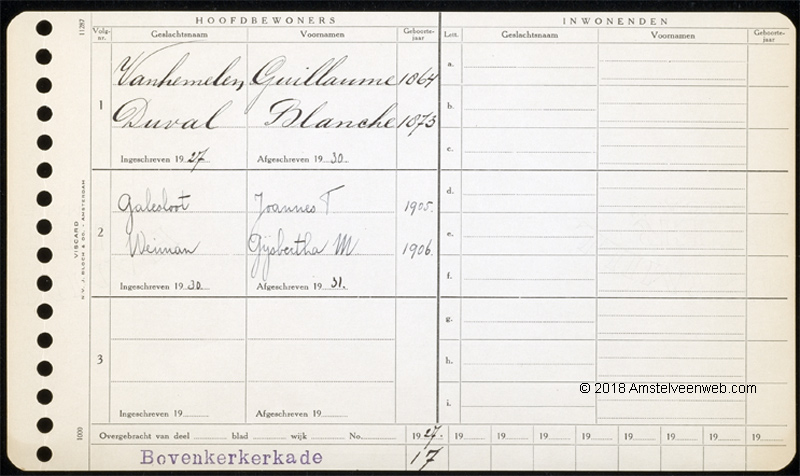 HOOFDBEWONERS INWONENDEN
Volg-nr. Geslachtsnaam Voornamen Geboorte-jaar Lett. Geslachtsnaam Voornamen Geboorte-jaar
11287
1
Vanhemelen, Guillaume 1864
Duval Blanche 1873
Ingeschreven 1927 Afgeschreven 1930.
a.
b.
c.
2
Galesloot Joannes T 1905.
Weiman Gijsbertha M. 1906.
Ingeschreven 1930. Afgeschreven 1931.
d.
e.
f.
3
Ingeschreven 19 Afgeschreven 19
g.
h.
i.
VISCARD
N.V. J. BLOCH & DC. - AMSTERDAM
1000
© 2018 Amstelveenweb.com
Overgebracht van deel blad wijk No. 1927. 19 19 19 19 19 19 19 19
Bovenkerkerkade 17